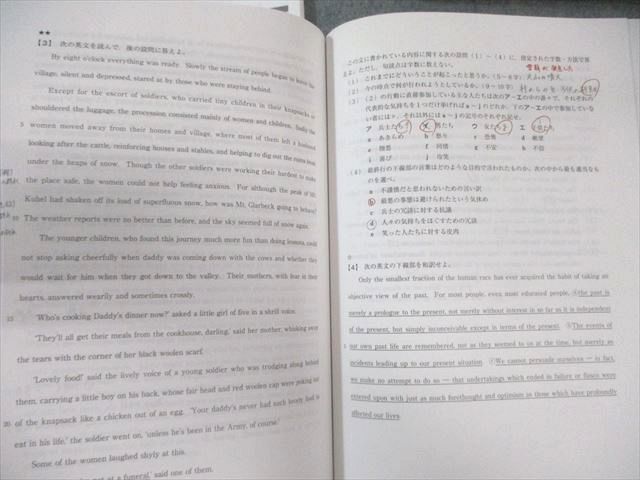 ★★
【3】 次の英文を読んで，後の設問に答えよ。
By eight o'clock everything was ready. Slowly the stream of people began to leave the
village, silent and depressed, stared at by those who were staying behind.
Except for the escort of soldiers, who carried tiny children in their knapsacks or
shouldered the luggage, the procession consisted mainly of women and children,
5 women moved away from their homes and village, where most of them left a husband
looking after the cattle, reinforcing houses and stables, and helping to dig out the ruins
under the heaps of snow. Though the other soldiers were working their hardest to make
the place safe, the women could not help feeling anxious. For although the peak of Mt.
Kühel had shaken off its load of superfluous snow, how was Mt. Glarbeck going to behave?
10 The weather reports were no better than before, and the sky seemed full of snow again.
The younger children, who found this journey much more fun than doing lessons, could
not stop asking cheerfully when daddy was coming down with the cows and whether they
would wait for him when they got down to the valley. Their mothers, with fear in their
hearts, answered wearily and sometimes crossly.
15 'Who's cooking Daddy's dinner now?' asked a little girl of five in a shrill voice.
'They'll all get their meals from the cookhouse, darling,' said her mother, wiping away
the tears with the corner of her black woolen scarf.
'Lovely food!' said the lively voice of a young soldier who was trudging along behind
them, carrying a little boy on his back, whose fair head and red woolen cap were poking out
20 of the knapsack like a chicken out of an egg. 'Your daddy's never had such lovely food to
eat in his life,' the soldier went on, 'unless he's been in the Army, of course.'
Some of the women laughed shyly at this.
at a funeral,' said one of them.
この文に書かれている内容に関する次の設問（1）～（4）に，指定された字数・方法で答
えよ。ただし，句読点は字数に数えない。
（1） これまでにどういうことが起こったと思うか。（5～8字）
（2） 今の時点で何が行われようとしているか。（9～10字）
（3） （2）の行動に直接参加している主な人たちは次のア～エの中の誰々で，それぞれの
代表的な気持ちを1つだけ挙げればa～jのどれか。下のア～エの中で参加していな
い者には×，それ以外にはa～jの記号のそれぞれ記せ。
ア 兵士たち イ 男たち ウ 女たち エ 子供たち
a あきらめ b 怒り c 恐怖 d 絶望
e 憎悪 f 同情 g 不安 h 不信
i 喜び j 冷笑
（4） 最終行の下線部の言葉はどのような目的で言われたものか。次の中から最も適当なも
のを選べ。
a 不謹慎だと思われないための言い訳
b 最悪の事態は避けられたという気休め
c 兵士の冗談に対する抗議
d 人々の気持ちをほぐすための冗談
e 笑った人たちに対する皮肉
【4】 次の英文の下線部を和訳せよ。
Only the smallest fraction of the human race has ever acquired the habit of taking an
objective view of the past. For most people, even most educated people, ①the past is
merely a prologue to the present, not merely without interest in so far as it is independent
of the present, but simply inconceivable except in terms of the present. ②The events of
5 our own past life are remembered, not as they seemed to us at the time, but merely as
incidents leading up to our present situation. ③We cannot persuade ourselves — in fact,
we make no attempt to do so — that undertakings which ended in failure or fiasco were
entered upon with just as much forethought and optimism as those which have profoundly
affected our lives.